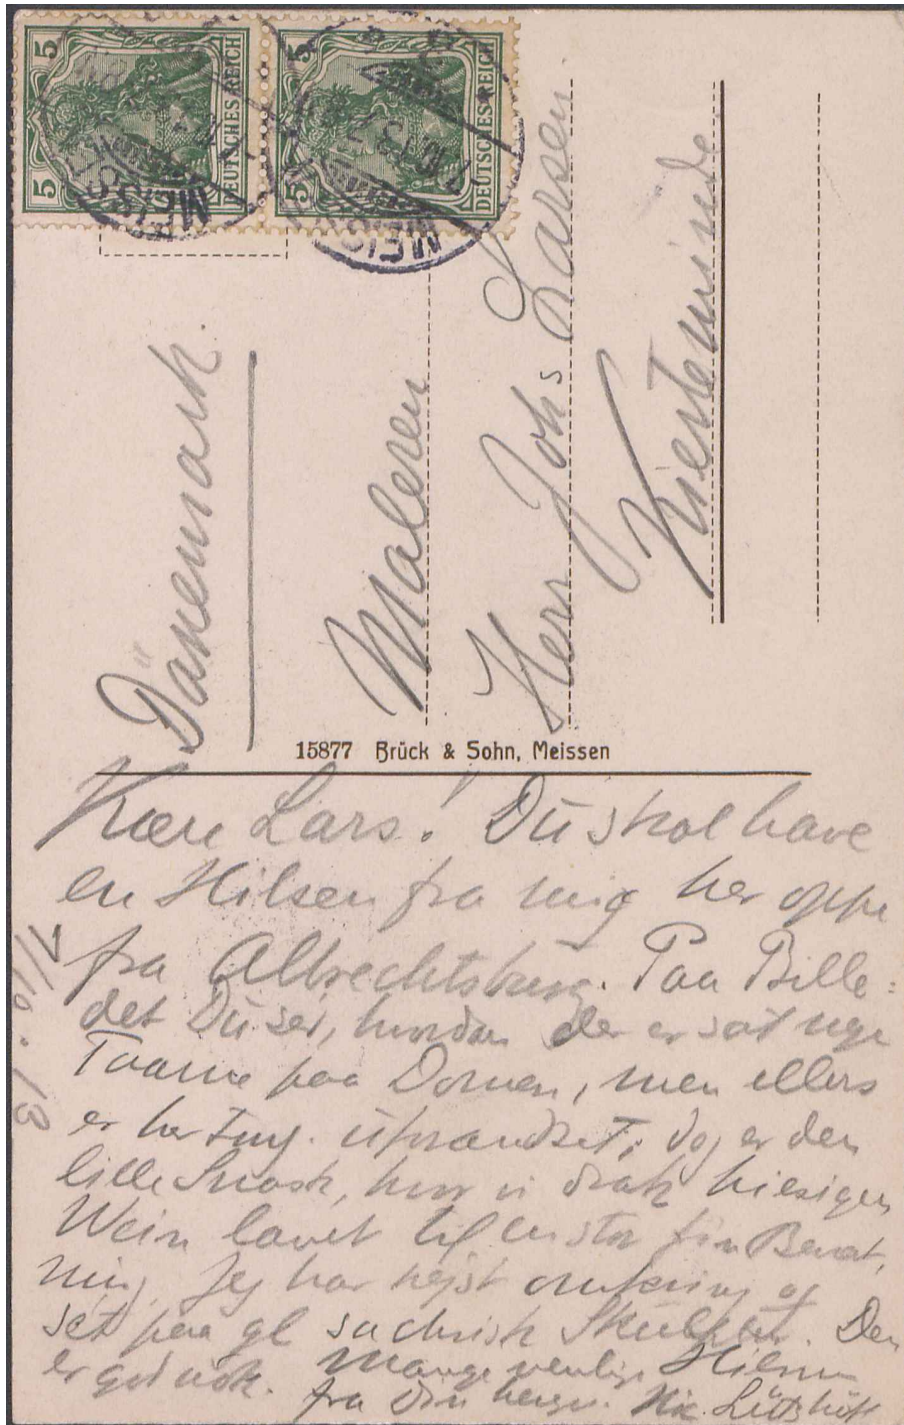 5 5
DEUTSCHES REICH
5 5
DEUTSCHES REICH
MEISSEN
7.10.13
Dänemark.
Maleren
Herr Johs Larsen
Kjerteminde
15877 Brück & Sohn, Meissen
7/10. 13
Kære Lars! Du skal have
en Hilsen fra mig her oppe
fra Albrechtsburg. Paa Bille-
det Du ser, hvordan der er sat nye
Taarne paa Domen, men ellers
er her uforandret; dog er den
lille Knash, hvor vi drak hiesigen
Wein lavet til en stor fin Bevært,
ning, Jeg har rejst omkring og
set paa gl sachsisk Skulptur. Den
er god nok. Mange venlige Hilsner
fra Din hengn. Nic. Lützhøft